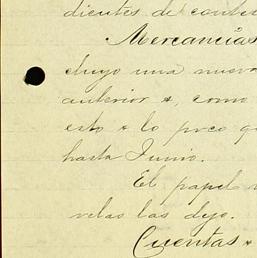 dientes de contes
Mercancías
cluyo una nueva
anterior &, como
esto & lo poco q
hasta Junio.
El papel
velas las dejo.
Cuentas